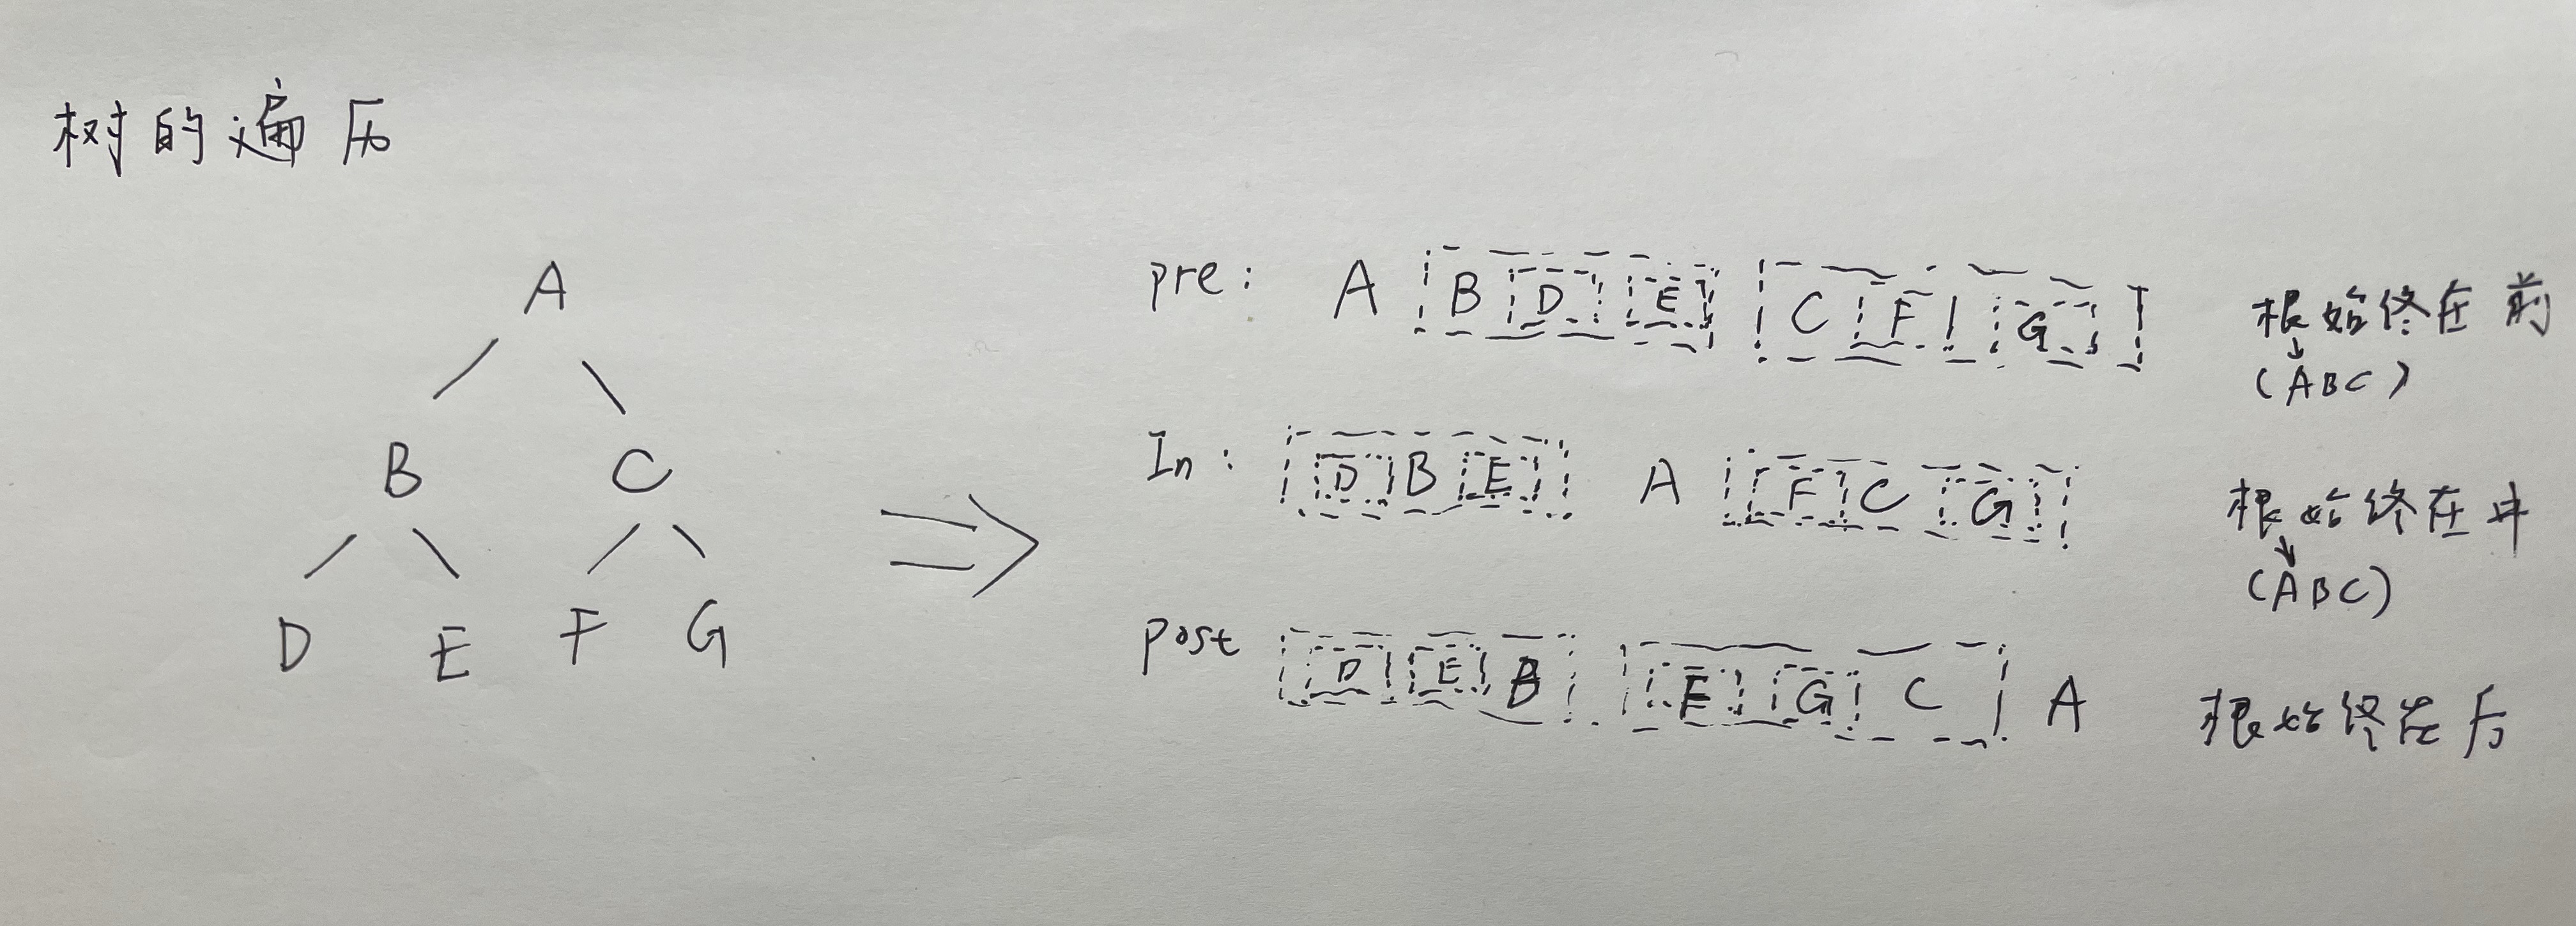 树的遍历
A
B C
D E F G
pre: A B D E C F G 根始终在前
(ABC)
In: D B E A F C G 根始终在中
(ABC)
post D E B F G C A 根始终在后